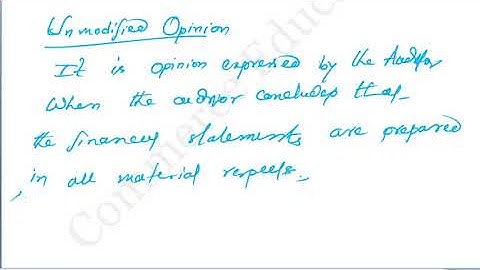 Unmodified Opinion
It is opinion expressed by the Auditor
When the auditor concludes that
the financial statements are prepared
in all material respects.
Commerce Educa